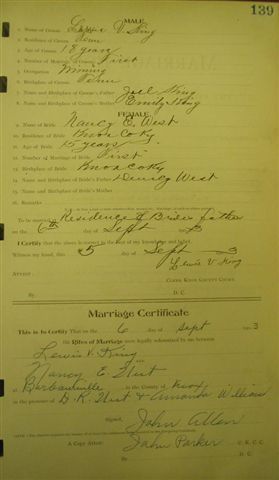 139
MALE
1. Name of Groom Lewis V. King
2. Residence of Groom Tenn
3. Age of Groom 18 years
4. Number of Marriage of Groom First
5. Occupation Mining
6. Birthplace of Groom Tenn
7. Name and Birthplace of Groom's Father Joel King
8. Name and Birthplace of Groom's Mother Emily King
FEMALE
9. Name of Bride Nancy E. West
10. Residence of Bride Knox Co Ky
11. Age of Bride 15 years
12. Number of Marriage of Bride First
13. Birthplace of Bride Knox Co Ky
14. Name and Birthplace of Bride's Father West
15. Name and Birthplace of Bride's Mother
16. Remarks
To be married at Residence of Brides father
on the 6th day of Sept 3
I Certify that the above is correct to the best of my knowledge and belief.
Witness my hand, this 5 day of Sept 3
Lewis V King
Attest:
Clerk Knox County Court
By D. C.
Marriage Certificate
This is to Certify That on the 6 day of Sept 3
the Rites of Marriage were legally solemnized by me between
Lewis V. King
Nancy E. West
at Barbourville in the County of Knox
in the presence of D. K. West & Amanda
Signed, John Allen
A Copy Attest: John Parker C. K. C. C.
By D. C.